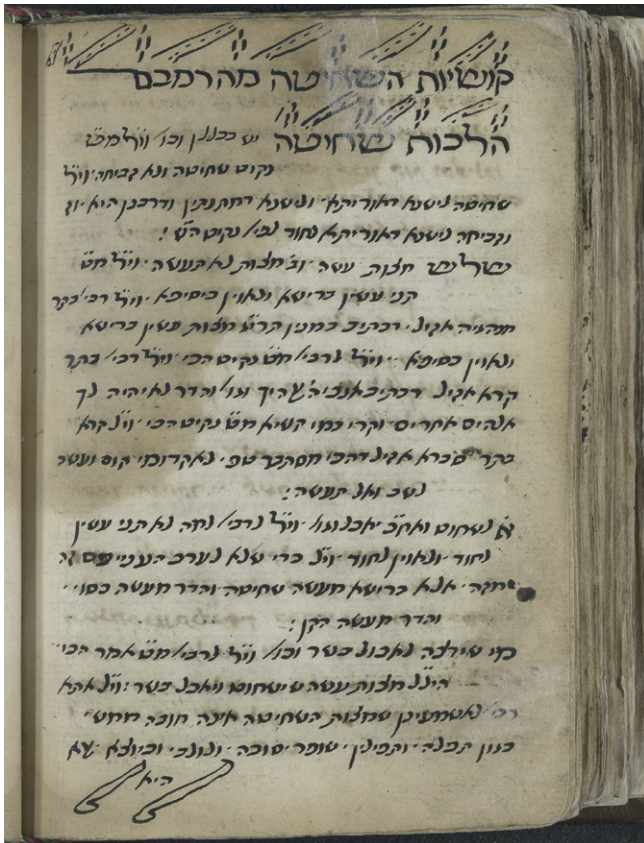 קושיות השחיטה מהרמבם
הלכות שחיטה יש בכללן וכו' וי"ל מ"ט
נקט שחיטה ולא זביחה וי"ל
שחיטה לישנא דאוריתא ולישנא דמתנתין ודרבנן היא וז
וזביחה לישנא דאוריתא לחוד נקיט
שלש מצות עשה וב' מצות לא תעשה וי"ל מ"ט
תני עשין ברישא ולאוין בסיפא וי"ל רבי' בתר
אזיל דכתיב במנין תרי"ג מצות עשין ברישא
ולאוין בסיפא וי"ל לרבי' מ"ט נקיט הכי וי"ל רבי' בתר
קרא אזיל דכתיב אנכי ה' וגו' והדר לא יהיה לך
אלהים אחרים וקרי גמי קשיא מ"ט נקיט הכי וי"ל קרא
בתר סברא אזיל דהכי מסתבר טפי לאקדומי קום ועשה
לשב ואל תעשה:
א' לשחוט ואח"כ יאכל וגו' וי"ל לרבי' למה לא תני עשין
לחוד ולאוין לחוד וי"ל כדי שלא לערב זה
בזה אלא ברישא מעשה שחיטה והדר מעשה כסוי
והדר מעשה הקן:
כמי שירצה לאכול בשר וכו' וי"ל לרבי' מ"ט אמר הכי
היל"ל מצות עשה שישחוט ויאכל בשר וי"ל אתא
רבי' לאשמעינן שמצות השחיטה אינה חובה ממש
כגון תפלה ותפילין שופר סוכה ולולב וכיוצא אלא
היא